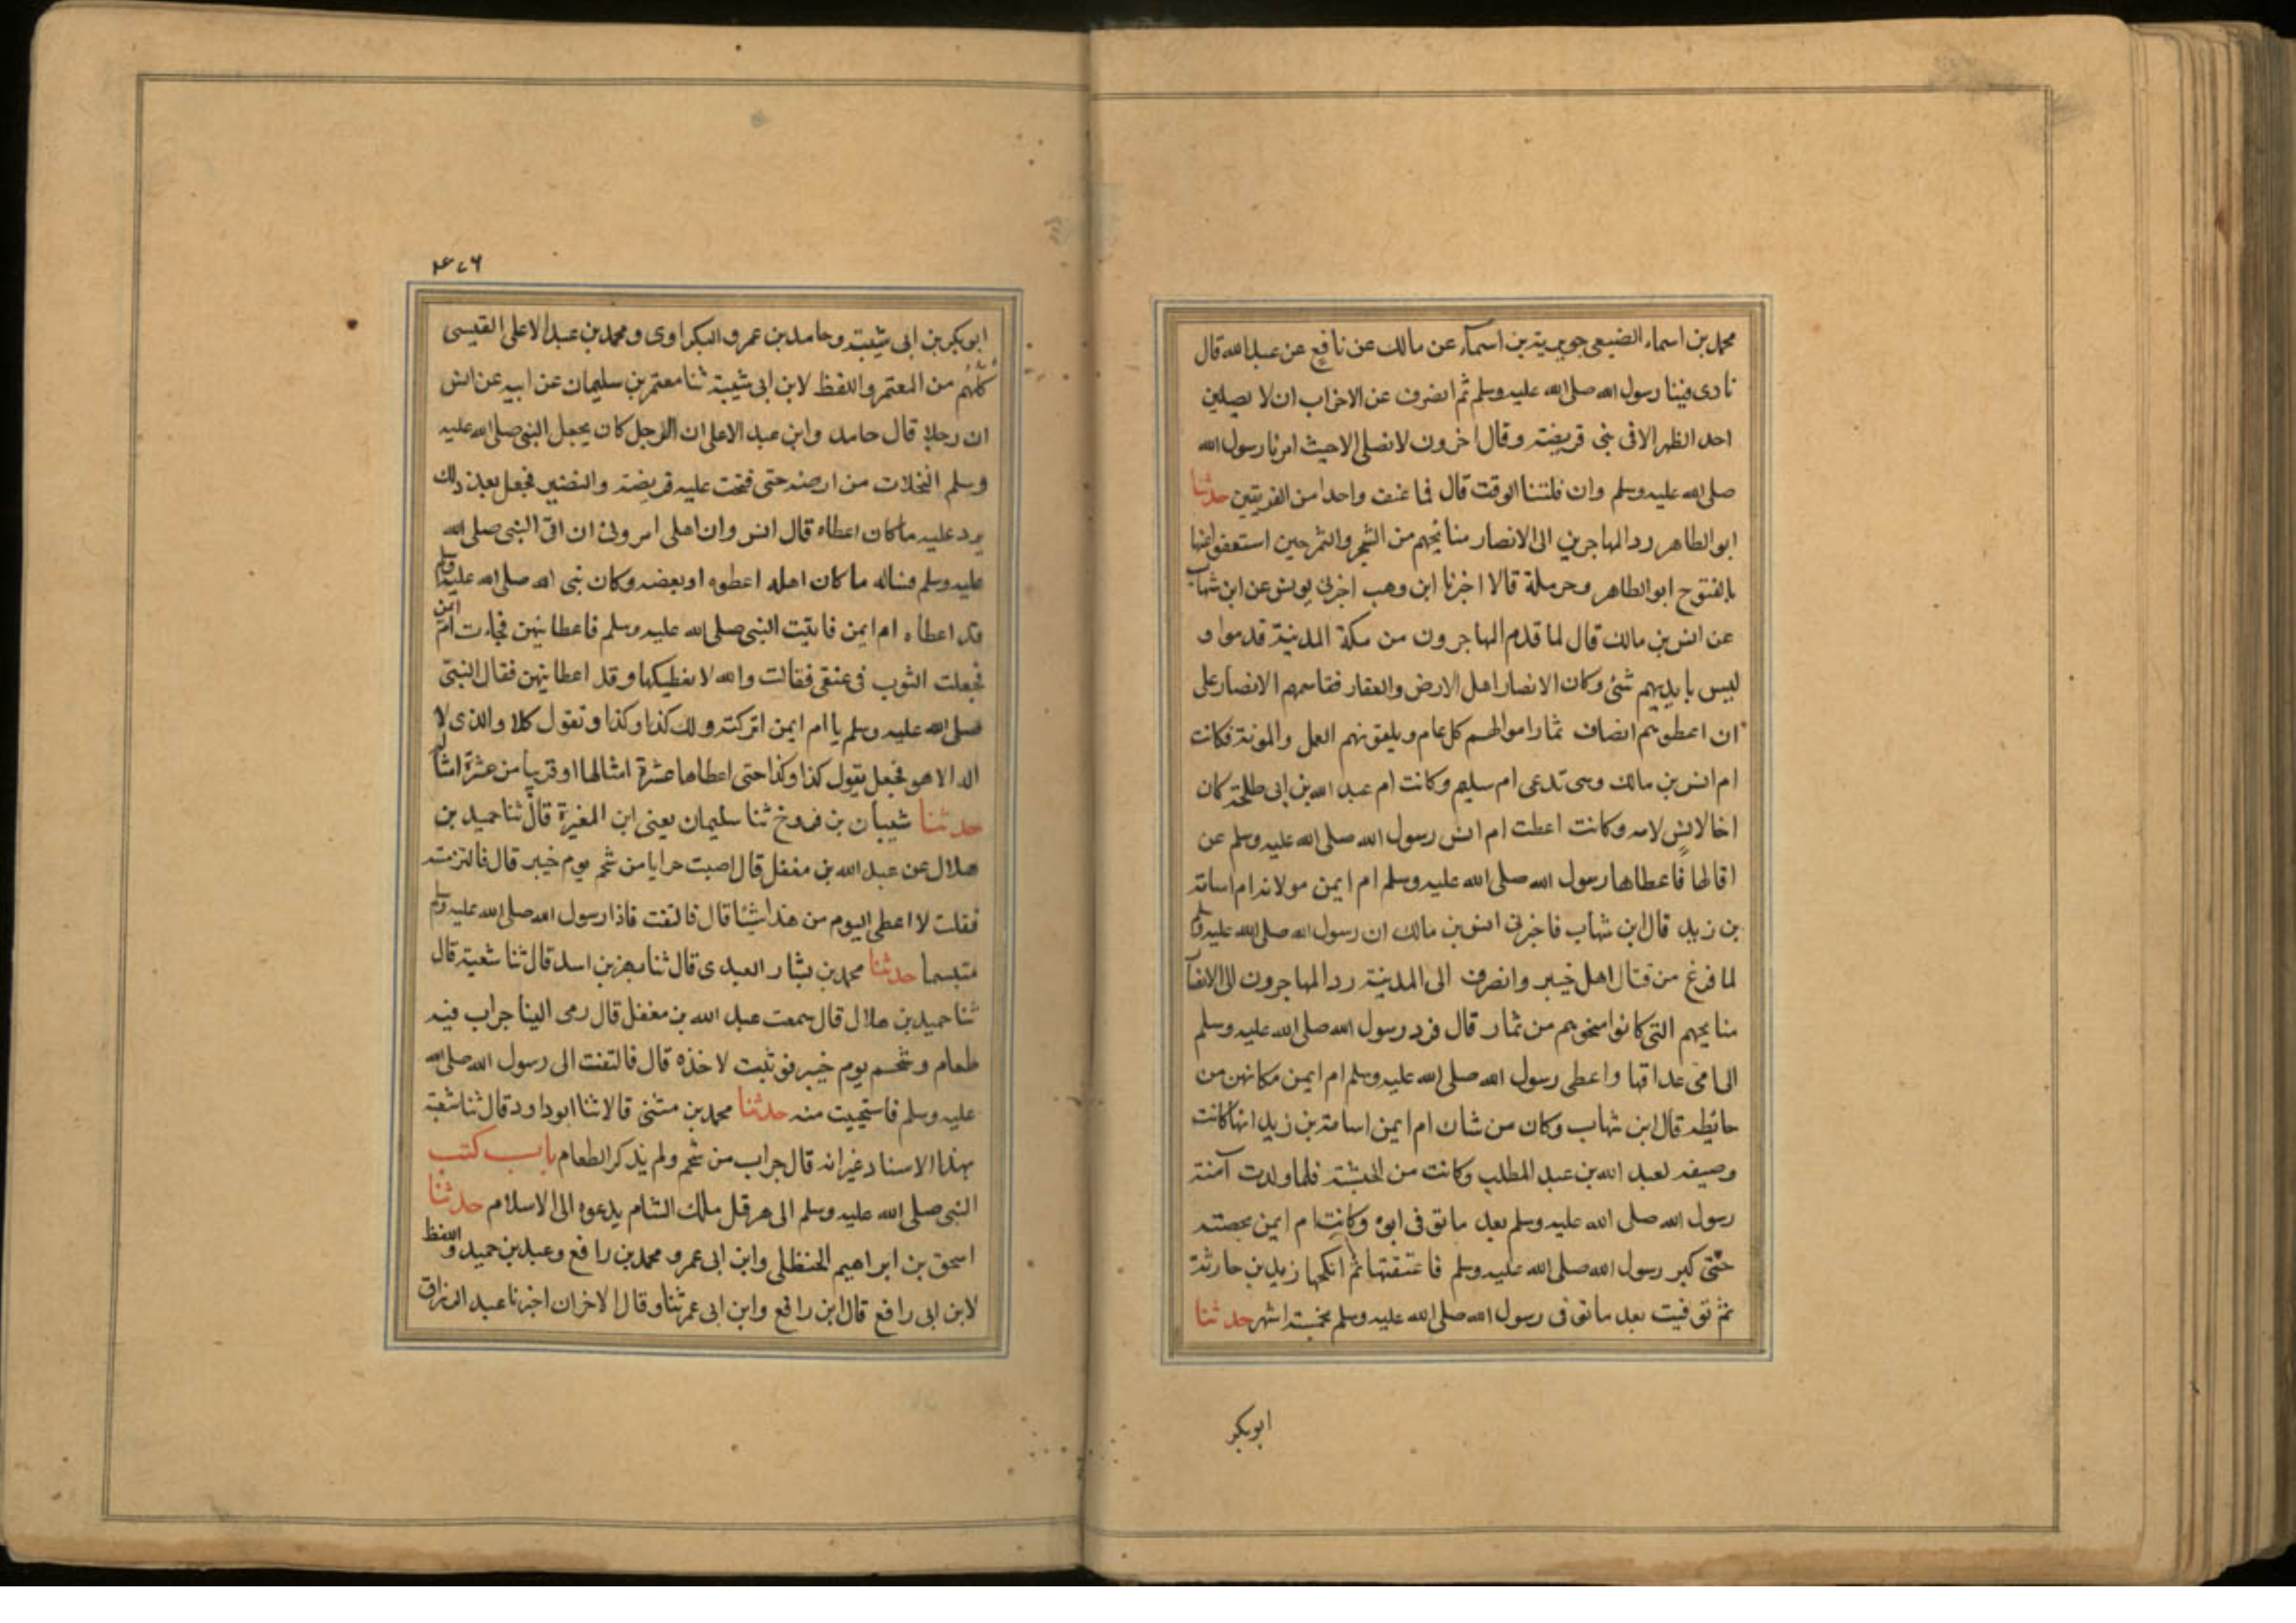 محمد بن اسماء الضبعى جويرية بن اسماء عن مالك عن نافع عن عبد الله قال
نادى فينا رسول الله صلى الله عليه وسلم ثم انصرف عن الاحزاب ان لا يصلين
احد الظهر الا فى بنى قريضة وقال اخرون لا نصلى الا حيث امرنا رسول الله
صلى الله عليه وسلم وان فاتنا الوقت قال فما عنف واحدا من الفريقين حدثنا
ابو الطاهر رد المهاجرين الى الانصار منائحهم من الشجر والثمر حين استغنوا عنها
بالفتوح ابو الطاهر وحرملة قالا اخبرنا ابن وهب اخبرنى يونس عن ابن شهاب
عن انس بن مالك قال لما قدم المهاجرون من مكة المدينة قدموا و
ليس بايديهم شئ وكان الانصار اهل الارض والعقار فقاسمهم الانصار على
ان اعطوهم انصاف ثمار اموالهم كل عام ويلفونهم العمل والمونة فكانت
ام انس بن مالك وهى تدعى ام سليم وكانت ام عبد الله بن ابى طلحة كان
اخا لانس لامه وكانت اعطت ام انس رسول الله صلى الله عليه وسلم عن
اقالها فاعطاها رسول الله صلى الله عليه وسلم ام ايمن مولاته ام اسامة
بن زيد قال ابن شهاب فاخبرنى انس بن مالك ان رسول الله صلى الله عليه وسلم
لما فرغ من قتال اهل خيبر وانصرف الى المدينة رد المهاجرون الى الانصار
منايحهم التى كانوا منحوهم من ثمار قال فرد رسول الله صلى الله عليه وسلم
الى امى عداقها واعطى رسول الله صلى الله عليه وسلم ام ايمن مكانهن من
حائطه قال ابن شهاب وكان من شان ام ايمن اسامة بن زيد انها كانت
وصيفه لعبد الله بن عبد المطلب وكانت من الحبشة فلما ولدت آمنة
رسول الله صلى الله عليه وسلم بعد ما توفى ابوه وكانت ام ايمن بحصنته
حتى كبر رسول الله صلى الله عليه وسلم فاعتقتها ثم انكحها زيد بن حارثة
ثم توفيت بعد ما توفى رسول الله صلى الله عليه وسلم بخمسة اشهر حدثنا
ابوبكر
ابوبكر بن ابى شيبة وحامد بن عمرو البكراوى ومحمد بن عبد الاعلى القيسى
كلهم من المعتمر واللفظ لابن ابى شيبة ثنا معتمر بن سليمان عن ابيه عن انس
ان رجلا قال حامد وابن عبد الاعلى ان الرجل كان يجعل النبى صلى الله عليه
وسلم النخلات من ارضه حتى فتحت عليه قريضة والنضير فجعل بعد ذلك
يرد عليه ما كان اعطاه قال انس وان اهلى امرونى ان اتى النبى صلى الله
عليه وسلم فساله ما كان اهله اعطوه او بعضه وكان نبى الله صلى الله عليه وسلم
قد اعطاه ام ايمن فاتيت النبى صلى الله عليه وسلم فاعطانيهن فجاءت ام ايمن
فجعلت الثوب فى عنقى فقالت والله لا نعطيكها وقد اعطانيهن فقال النبى
صلى الله عليه وسلم يا ام ايمن اتركته ولك كذا وكذا وتقول كلا والذى لا
اله الا هو فجعل يقول كذا وكذا حتى اعطاها عشرة امثالها او قريبا من عشرة امثاله
حدثنا شيبان بن فروخ ثنا سليمان يعنى ابن المغيرة قال ثنا حميد بن
هلال عن عبد الله بن مغفل قال اصبت حرابا من شحم يوم خيبر قال فالتزمته
فقلت لا اعطى اليوم من هذا شيئا قال فالتفت فاذا رسول الله صلى الله عليه وسلم
متبسما حدثنا محمد بن بشار العبدى قال ثنا بهز بن اسد قال ثنا شعبة قال
ثنا حميد بن هلال قال سمعت عبد الله بن مغفل قال رمى الينا جراب فيه
طعام وشحم يوم خيبر فوثبت لاخذه قال فالتفت الى رسول الله صلى الله
عليه وسلم فاستحييت منه حدثنا محمد بن مثنى قالا ثنا ابو داود قال ثنا شعبة
بهذا الاسناد غير انه قال جراب من شحم ولم يذكر الطعام باب كتب
النبى صلى الله عليه وسلم الى هرقل ملك الشام يدعوه الى الاسلام حدثنا
اسحق بن ابراهيم الحنظلى وابن ابى عمر و محمد بن رافع وعبد بن حميد واللفظ
لابن ابى رافع قال ابن رافع وابن ابى عمر ثنا وقال الاخران اخبرنا عبد الرزاق